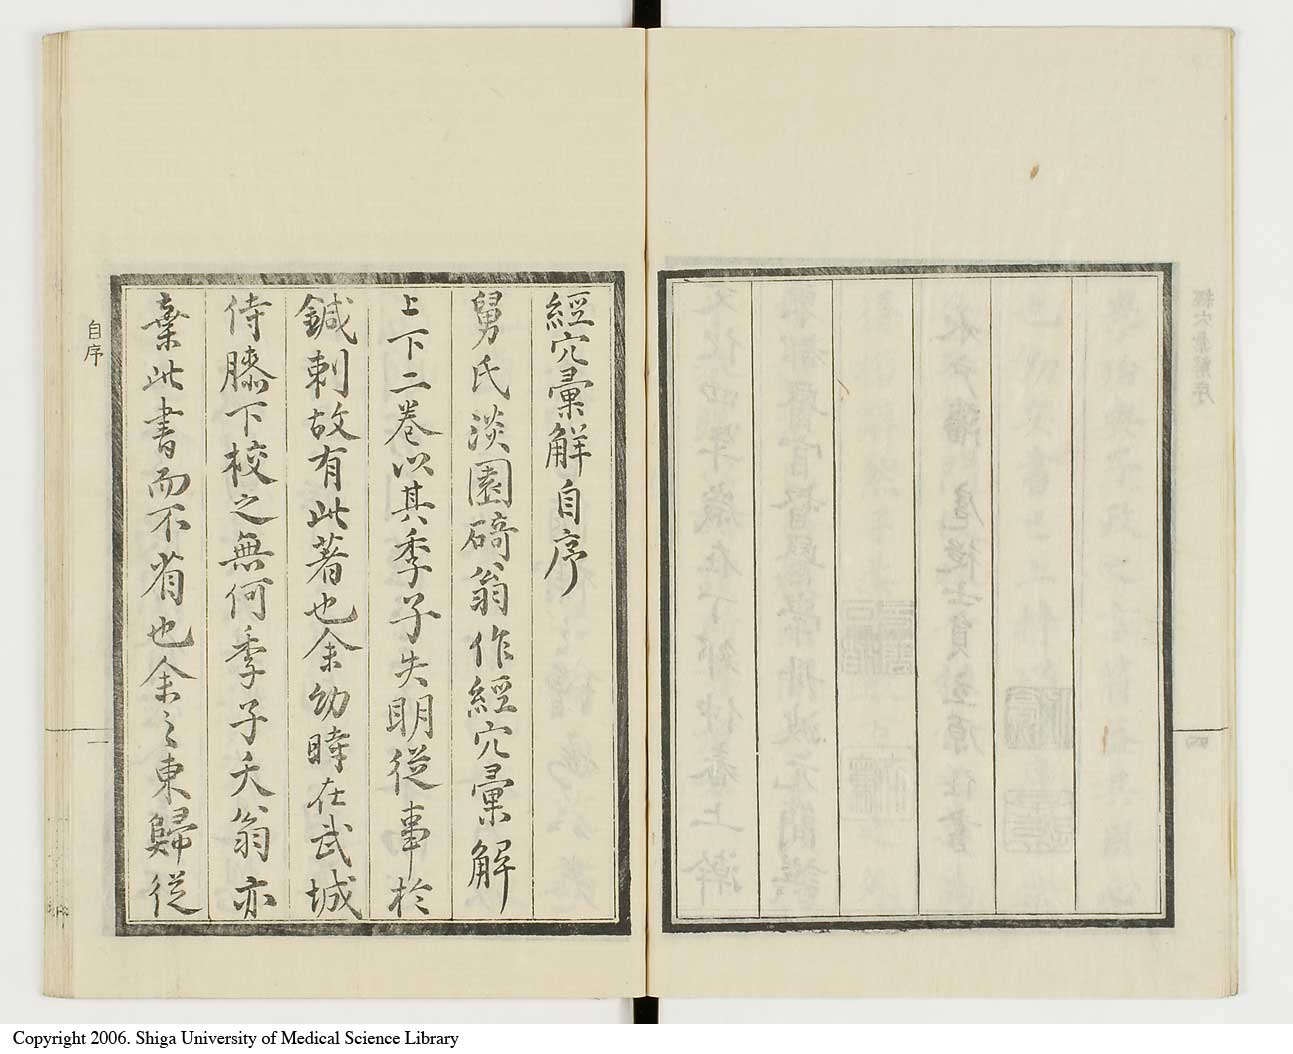 經穴彙解自序
舅氏淡園碕翁作經穴彙解
上下二卷以其季子失明從事於
鍼刺故有此著也余幼時在武城
侍膝下校之無何季子夭翁亦
棄此書而不省也余之東歸從
自序
一
Copyright 2006. Shiga University of Medical Science Library